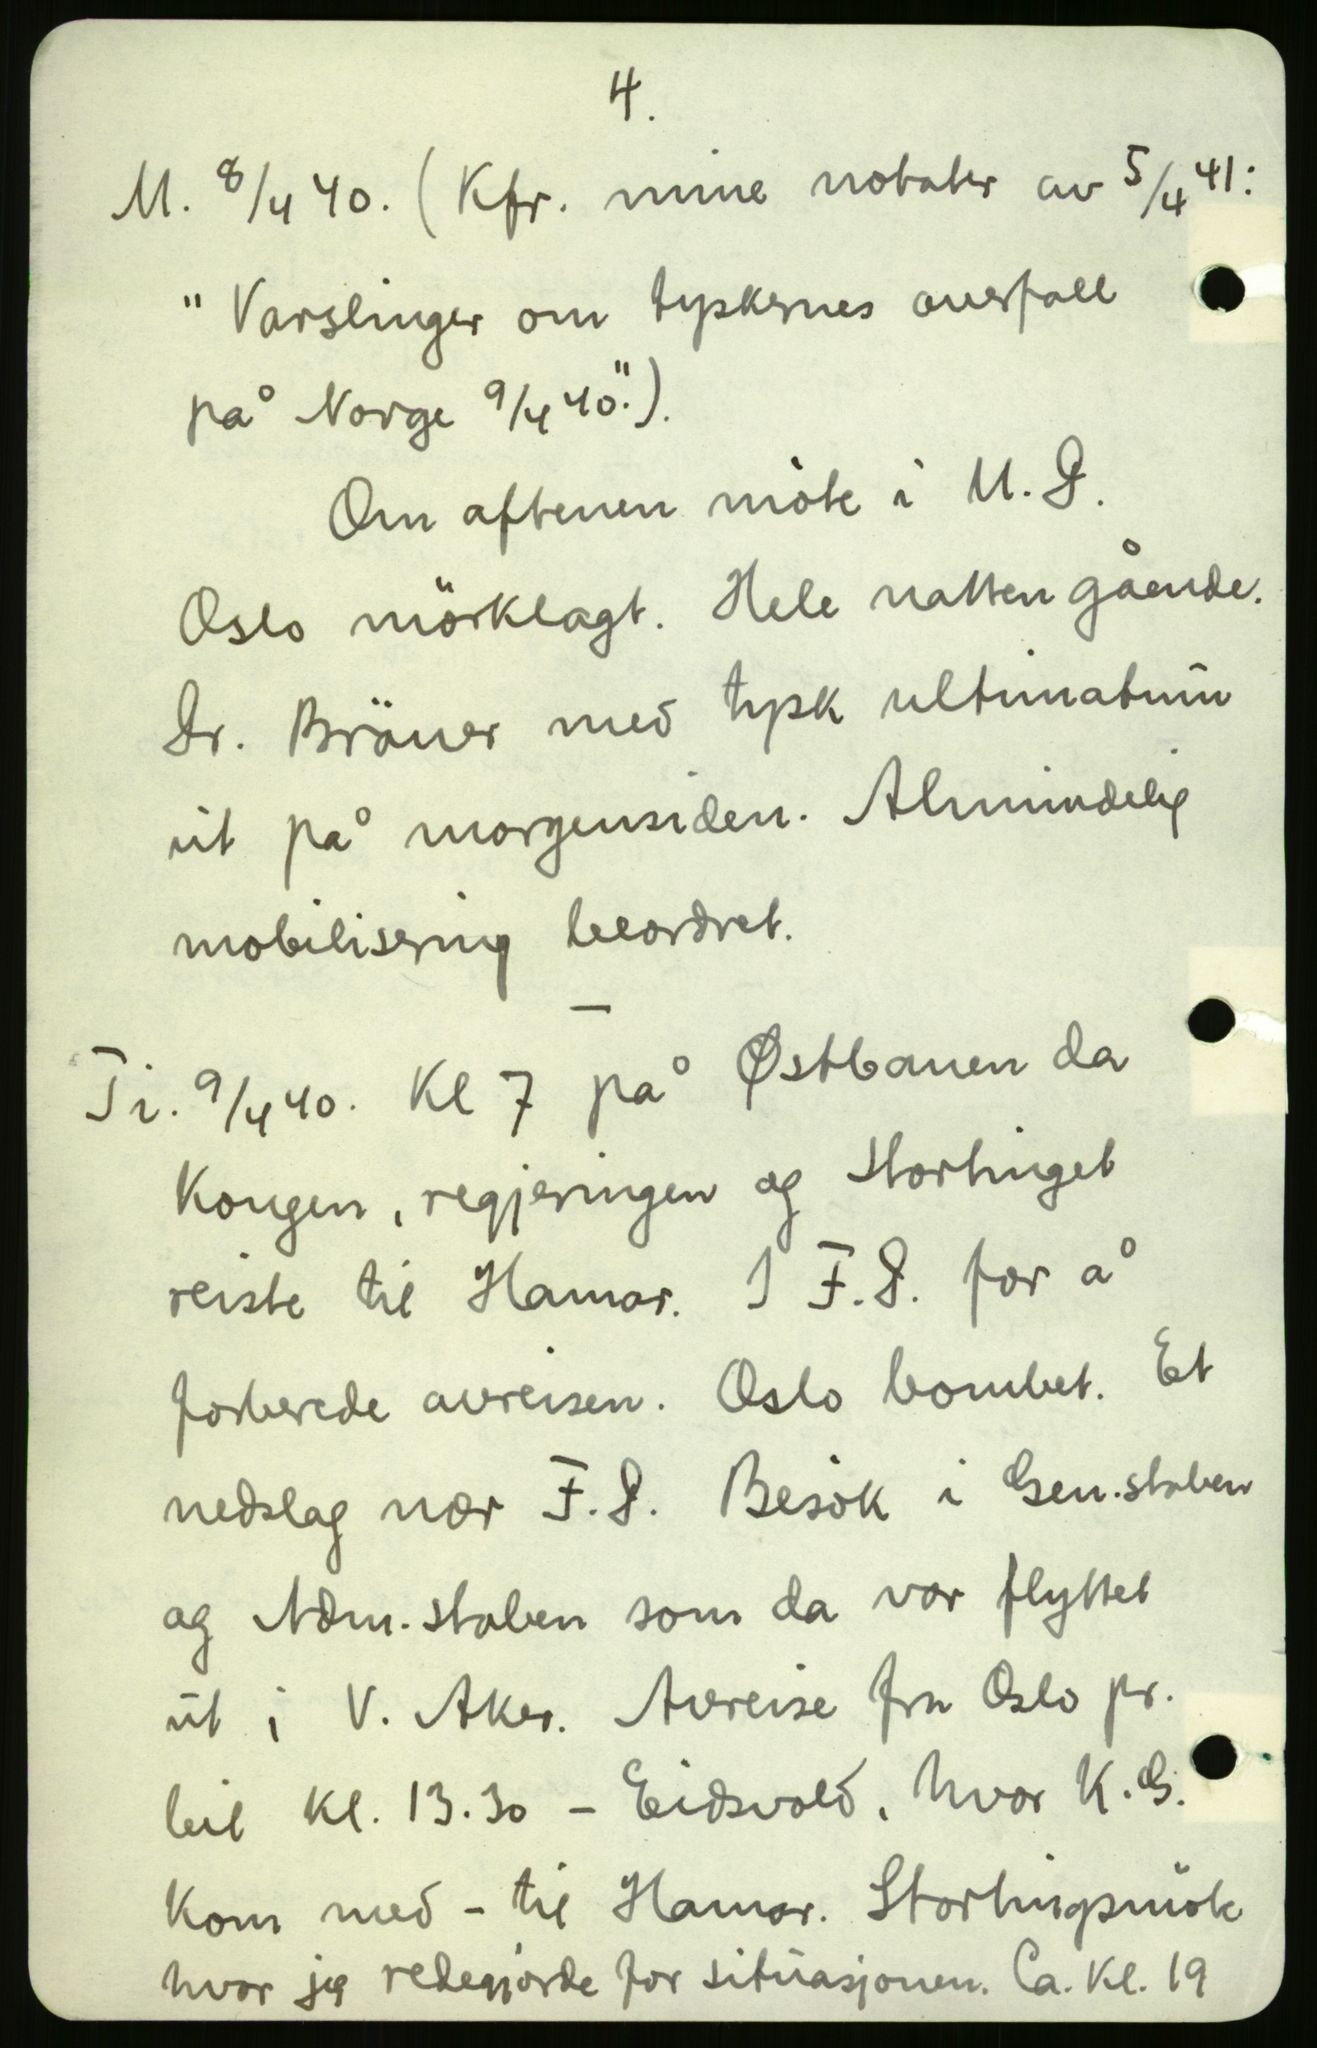 4.
M. 8/4 40. (Kfr. mine notater av 5/4 41:
"Varslinger om tyskernes overfall
på Norge 9/4 40".).
Om aftenen möte i U. D.
Oslo mörklagt. Hele natten gående.
Dr. Bräuer med tysk ultimatum
ut på morgensiden. Almindelig
mobilisering beordret.
—
Ti. 9/4 40. Kl 7 på Østbanen da
Kongen, regjeringen og Stortinget
reiste til Hamar. I F.D. for å
forberede avreisen. Oslo bombet. Et
nedslag nær F.D. Besök i Gen.staben
og Adm.staben som da var flyttet
ut i V. Aker. Avreise fra Oslo pr.
bil kl. 13.30 - Eidsvold, hvor K.G.
kom med - til Hamar. Stortingsmöte
hvor jeg redegjorde for situasjonen. Ca. kl. 19